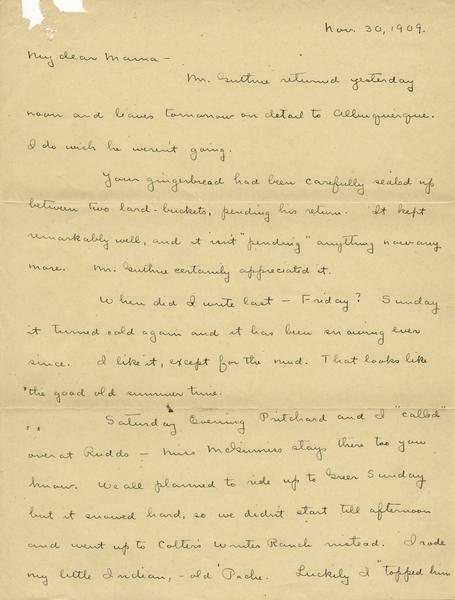 Nov. 30, 1909.
My dear Mama -
Mr. Guthrie returned yesterday
noon and leaves tomorrow on detail to Albuquerque.
I do wish he weren't going.
Your gingerbread had been carefully sealed up
between two lard-buckets, pending his return. It kept
remarkably well, and it isn't "pending" anything now any
more. Mr. Guthrie certainly appreciated it.
When did I write last - Friday? Sunday
it turned cold again and it has been snowing ever
since. I like it, except for the mud. That looks like
"the good old summer time.
Saturday Evening Pritchard and I "called"
over at Rudds - Miss McGinness stays there too you
know. We all planned to ride up to Greer Sunday
but it snowed hard, so we didn't start till afternoon
and went up to Colter's Winter Ranch instead. I rode
my little Indian, - old 'Pache. Luckily I "topped him